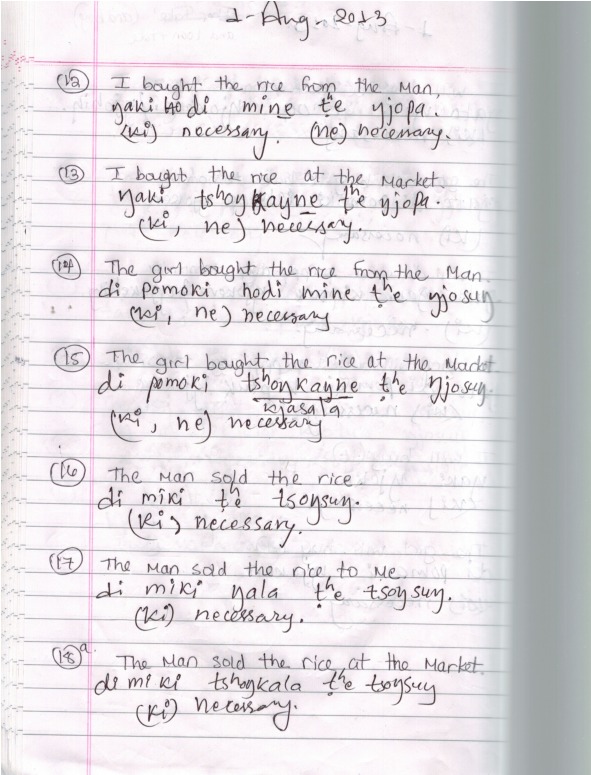 1-Aug-2013
(12) I bought the rice from the Man,
ŋaki ho di mine ṭʰe ŋjopa.
(ki) necessary. (ne) necessary.
(13) I bought the rice at the Market.
ŋaki tshoŋkayne ṭʰe ŋjopa.
(ki, ne) necessary.
(14) The girl bought the rice from the Man.
di pomoki hodi mine ṭʰe ŋjosuŋ
(ki, ne) necessary
(15) The girl bought the rice at the Market
di pomoki tshoŋkayne ṭʰe ŋjosuŋ.
kjasala
(ki, ne) necessary
(16) The Man sold the rice.
di miki ṭʰe tsoŋsuŋ.
(ki) necessary.
(17) The Man sold the rice to Me.
di miki ŋala ṭʰe tsoŋsuŋ.
(ki) necessary.
(18)a. The Man sold the rice at the Market.
di miki tshoŋkala ṭʰe tsoŋsuŋ
(ki) necessary.